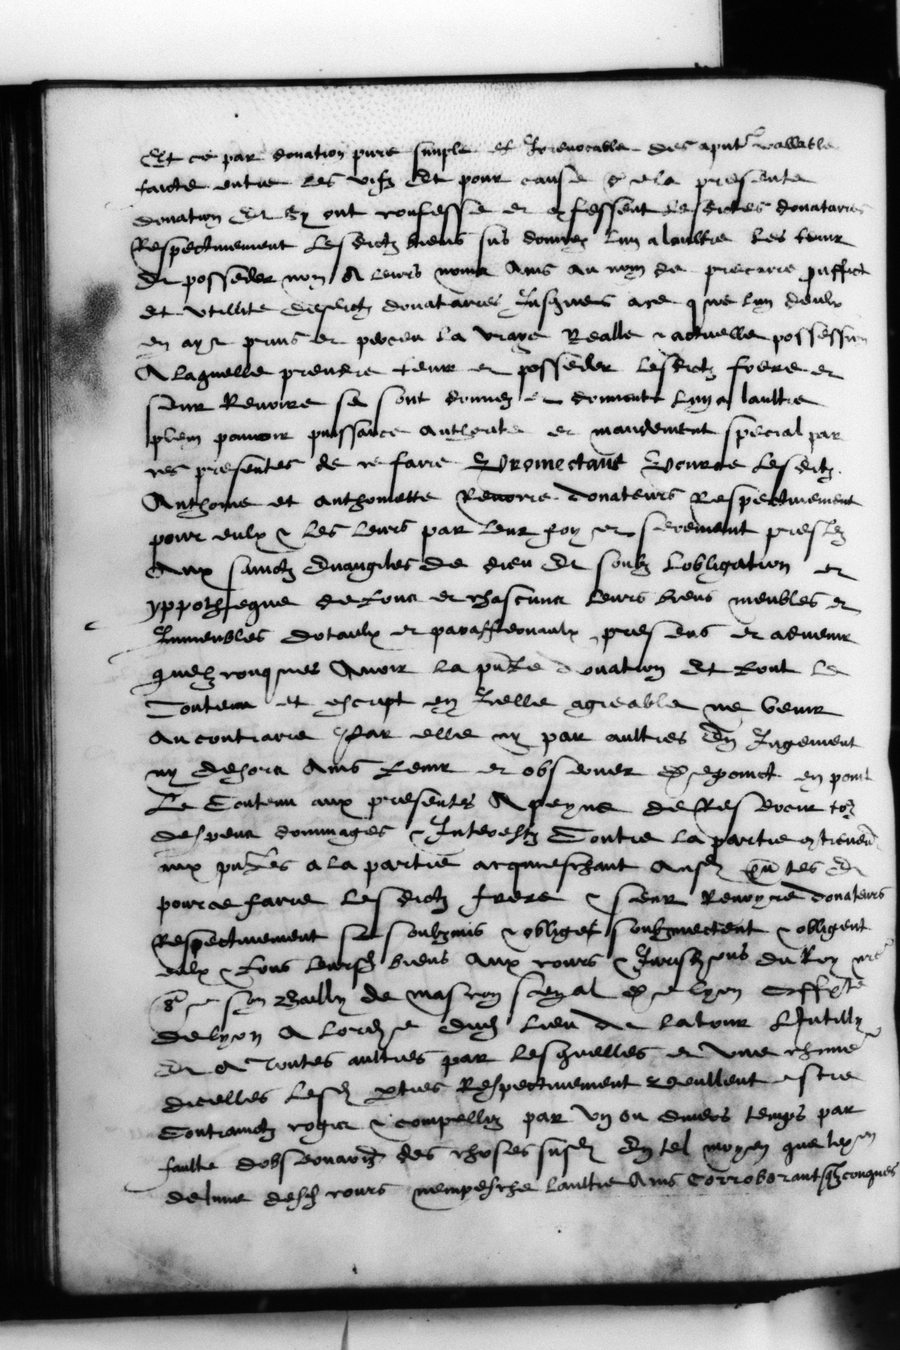 Et ce par donation pure simple et Irrevocable des a pnt vallable
faicte entre les vifz Et pour cause de la presente
donation Et Et ont confesse et confessent lesdictes donataires
Respectivement lesdictz biens sus donnez lun a laultre les tenir
Et posseder non A leurs noms Ains au nom de precaire prouffict
et utillite desdictz donataires Jusques a ce que lun deulx
en aye prins et perceu la vraye Realle & actuelle possession
A laquelle prendre tenir et posseder lesdictz frere et
seur Revoire se sont donnez et donnent lun a laultre
plein pouvoir puissance authorite et mandement special par
ces presentes de ce faire Promectant Encores lesdictz
Anthoine et anthoinette Revoire donateurs Respectivement
pour eulx & les leurs par leur foy et serement prestez
Aux sainctz Evangiles de dieu Et soubz lobligation et
yppothecque de tous et chascuns leurs biens meubles et
Immeubles dotaulx et paraffernaulx presens et advenir
quelzconques Avoir la pnte donation Et tout le
Contenu et escript en Icelle agreable ne venir
au contraire par elle ny par aultres En Jugement
ny dehors Ains tenir et observer de poinct en poinct
Le Contenu aux presentes A peyne de Reffaire toz
despens dommages & Interestz Contre la partie
aux pntes a la partie acquiesçant Ausd
pour ce faire lesdictz frere & seur Revoyre donateurs
Respectivement se soubzmis & obliget soubzmectent & obligent
eulx & tous leursd biens Aux cours & Jurisdons du Roy nre
sr son Bailly de mascon senal de lyon Officte
de lyon A lordre dud lieu de la tour
Et A Toutes aultres par lesquelles et une chune
dicelles lesd pties Respectivement veullent estre
Contrainctz regir & compellir par un ou divers temps par
faulte dobservation des choses susd En tel moyen que lexon
de lune desd cours nempesche laultre Ains Corroborant qlzconques